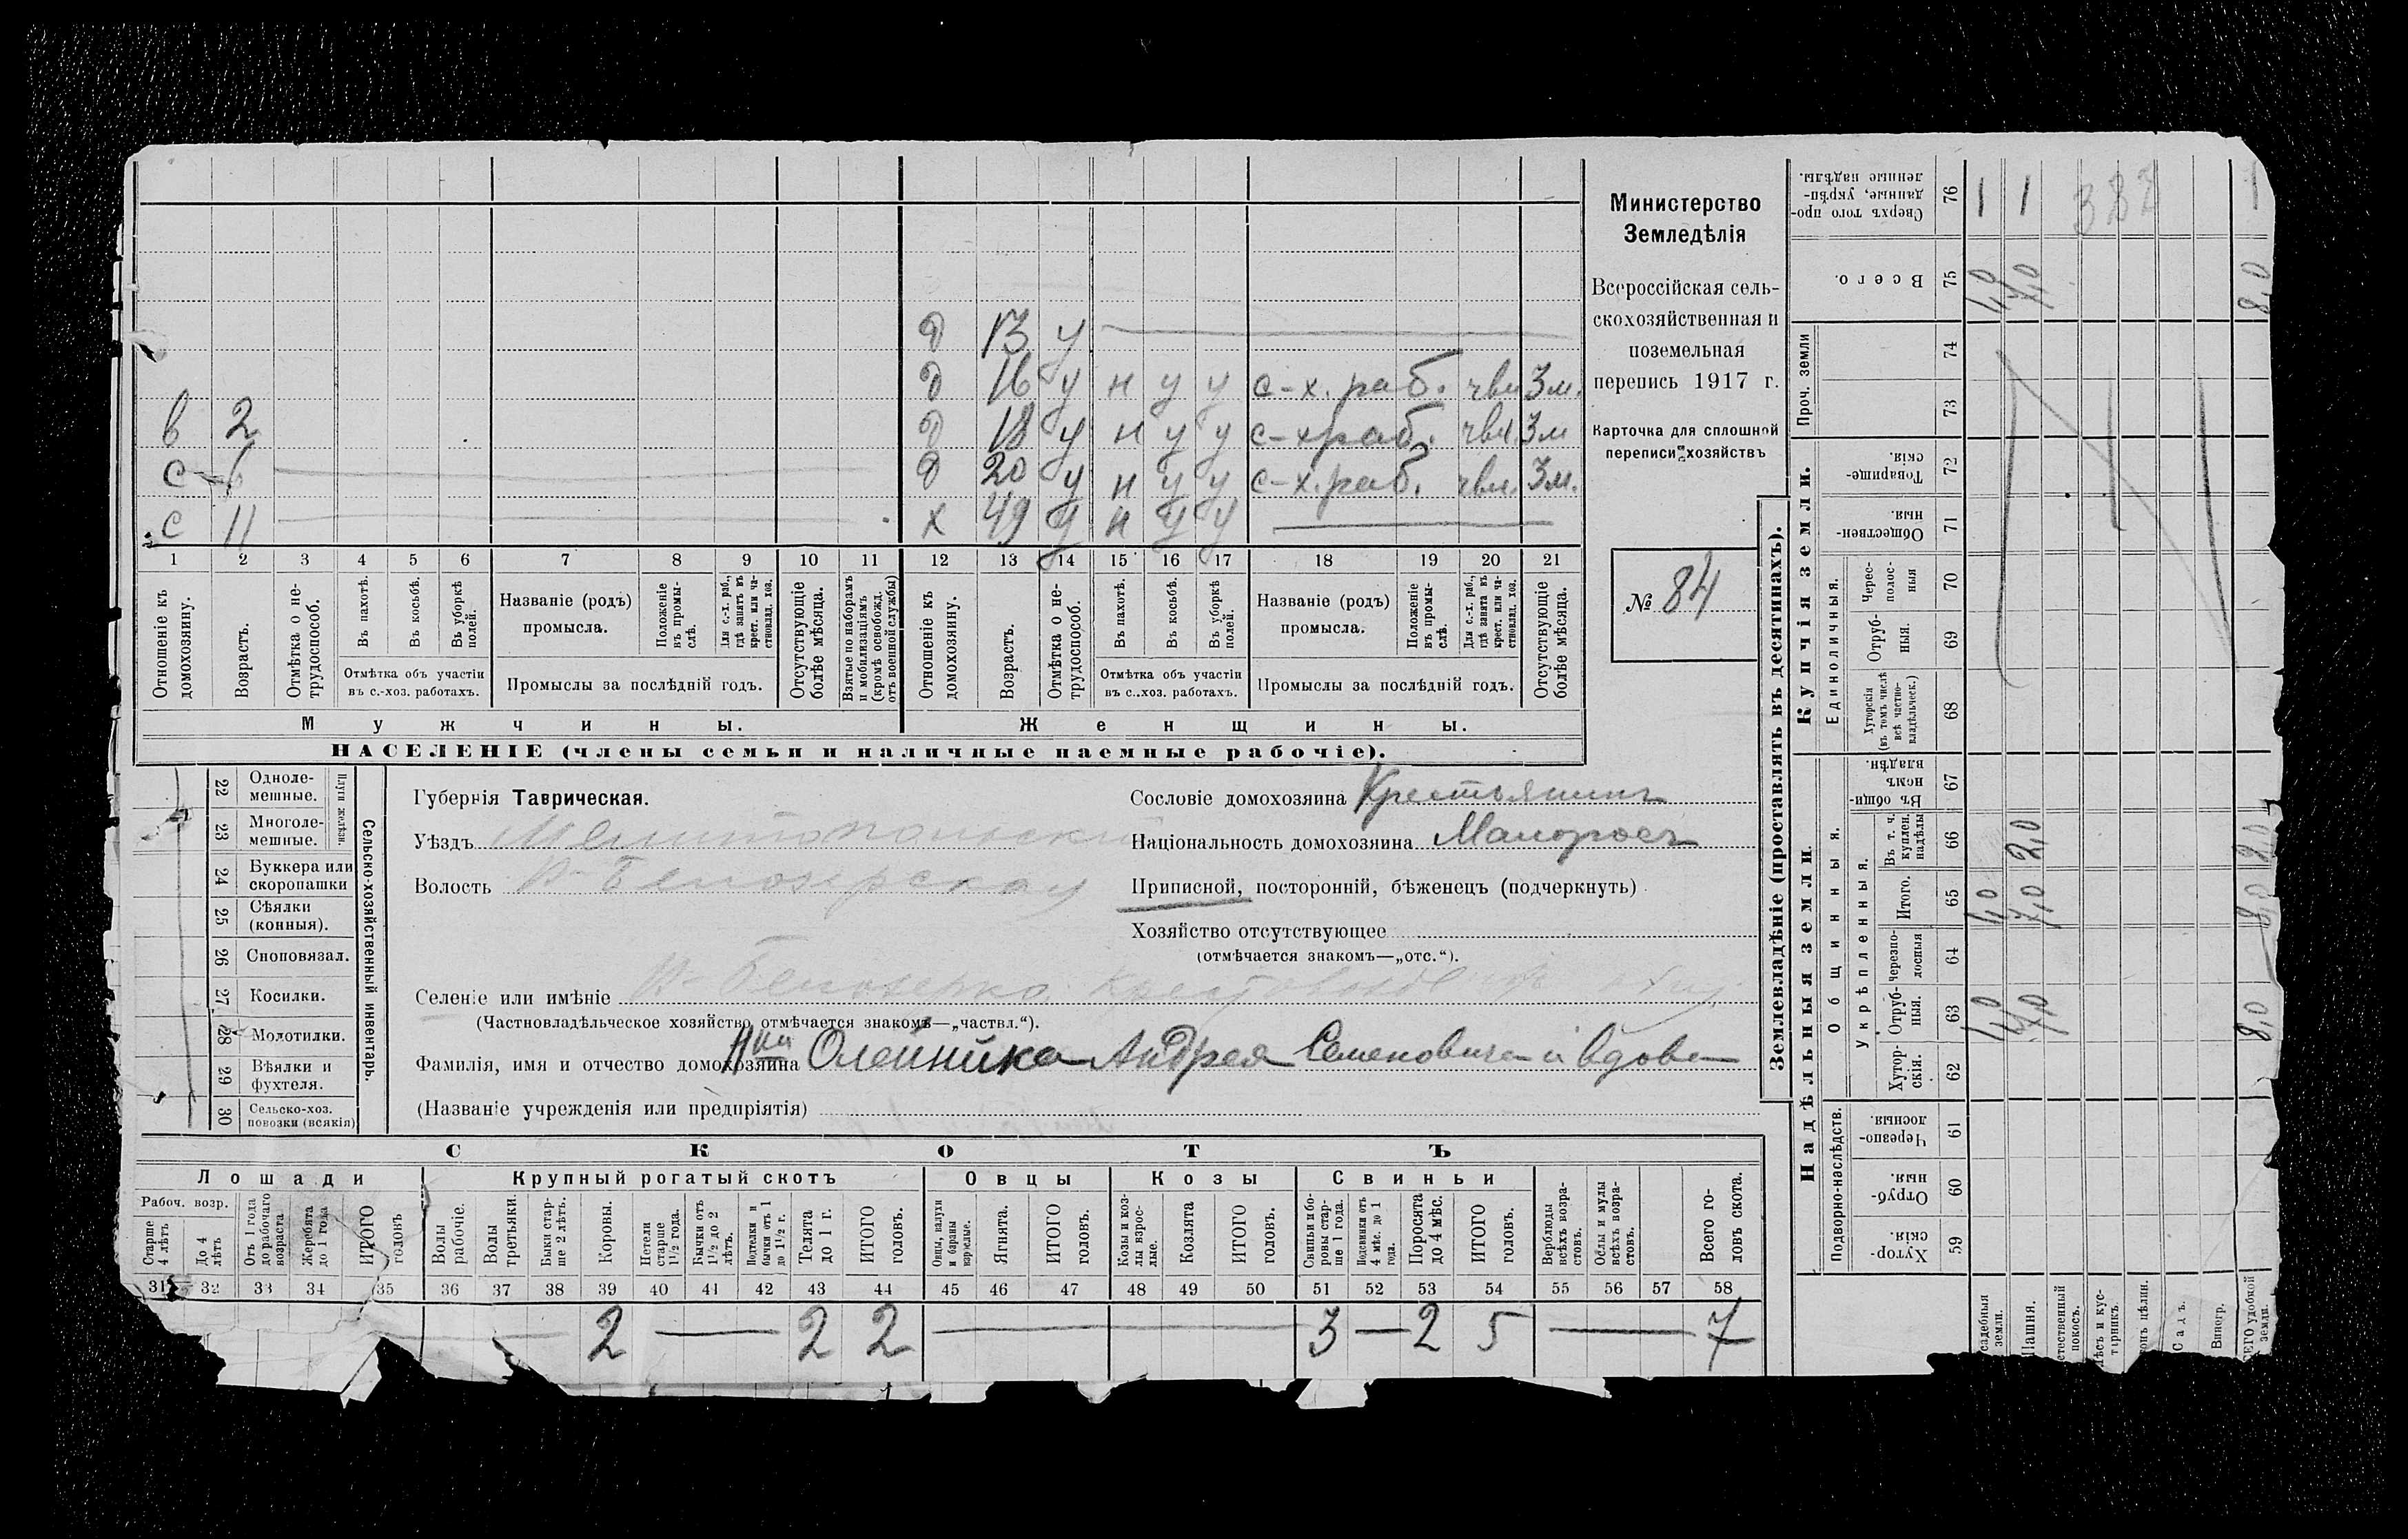 д 13 у
д 16 у н у у с-х. раб. чвл 3 м.
в 2 д 18 у н у у с-х раб. чвл. 3 м
с 6 д 20 у н у у с-х. раб. чвл. 3 м.
с 11 х 49 у н у у
1 2 3 4 5 6 7 8 9 10 11 12 13 14 15 16 17 18 19 20 21
Отношеніе къ домохозяину.
Возрастъ.
Отмѣтка о не-
трудоспособ.
Въ пахотѣ.
Въ косьбѣ.
Въ уборкѣ полей.
Отмѣтка объ участіи
въ с.-хоз. работахъ.
Названіе (родъ)
промысла.
Положеніе
въ промы-
слѣ.
Для с.-х. раб.,
гдѣ занятъ въ
крест. или ча-
стновлад. хоз.
Промыслы за послѣдній годъ.
Отсутствующіе
болѣе мѣсяца.
Взятые по наборамъ
и мобилизаціямъ
(кромѣ освобожд.
отъ военной службы)
Отношеніе къ
домохозяину.
Возрастъ.
Отмѣтка о не-
трудоспособ.
Въ пахотѣ.
Въ косьбѣ.
Въ уборкѣ
полей.
Отмѣтка объ участіи
въ с.-хоз. работахъ.
Названіе (родъ)
промысла.
Положеніе
въ промы-
слѣ.
Для с.-х. раб.,
гдѣ занята въ
крест. или ча-
стновлад. хоз.
Промыслы за послѣдній годъ.
Отсутствующіе
болѣе мѣсяца.
Мужчины.
Женщины.
НАСЕЛЕНІЕ (члены семьи и наличные наемные рабочіе).
Министерство
Земледѣлія
Всероссійская сель-
скохозяйственная и
поземельная
перепись 1917 г.
Карточка для сплошной
переписи хозяйствъ
№ 84
22 Одноле-
мешные.
23 Многоле-
мешные.
Плуги желѣзн.
24 Буккера или
скоропашки
25 Сѣялки
(конныя).
26 Сноповязал.
27 Косилки.
28 Молотилки.
29 Вѣялки и
фухтеля.
30 Сельско-хоз.
повозки (всякія)
Сельско-хозяйственный инвентарь.
Губернія Таврическая.
Уѣздъ Мелитопольскій
Волость В-Белозерская
Сословіе домохозяина Крестьянинъ
Національность домохозяина Малоросъ
Приписной, посторонній, бѣженецъ (подчеркнуть)
Хозяйство отсутствующее
(отмѣчается знакомъ—„отс.“).
Селеніе или имѣніе В-Белозерка
(Частновладѣльческое хозяйство отмѣчается знакомъ—„частвл.“).
Фамилія, имя и отчество домохозяина Олейника Андрея Семеновича и вдова
(Названіе учрежденія или предпріятія)
СКОТЪ
Лошади
Крупный рогатый скотъ
Овцы
Козы
Свиньи
Рабоч. возр.
Старше
4 лѣтъ
До 4
лѣтъ
Отъ 1 года
до рабочаго
возраста
Жеребята
до 1 года
ИТОГО
головъ
Волы
рабочіе.
Волы
третьяки.
Быки стар-
ше 2 лѣтъ.
Коровы.
Нетели
старше
1½ года.
Бычки отъ
1½ до 2
лѣтъ.
Подтелки и
бычки отъ 1
до 1½ г.
Телята
до 1 г.
ИТОГО
головъ.
Овцы, валухи
и бараны
взрослые.
Ягнята.
ИТОГО
головъ.
Козы и коз-
лы взрос-
лые.
Козлята
ИТОГО
головъ.
Свиньи и бо-
ровы стар-
ше 1 года.
Подсвинки отъ
4 мѣс. до 1
года.
Поросята
до 4 мѣс.
ИТОГО
головъ.
Верблюды
всѣхъ возра-
стовъ.
Ослы и мулы
всѣхъ возра-
стовъ.
Всего го-
ловъ скота.
31 32 33 34 35 36 37 38 39 40 41 42 43 44 45 46 47 48 49 50 51 52 53 54 55 56 57 58
2 2 2 3 2 5 7
Землевладѣніе (проставлять въ десятинахъ).
Купчія земли.
Надѣльныя земли
Проч. земли
Единоличныя.
Общинныя.
Укрѣпленныя.
Подворно-наслѣдств.
Сверхъ того про-
данные, укрѣп-
ленные надѣлы. 76 1 1 1
Всего. 75 1,0 7,0 8,0
74
73
Товарище-
скія. 72
Обществен-
ныя. 71
Черес-
полос-
ныя 70
Отруб-
ныя. 69
Хуторскія
(въ томъ числѣ
всѣ частно-
владѣльческ.) 68
Въ общи-
номъ
владѣн. 67
Въ т. ч.
куплен.
надѣлы 66 2,0 2,0
Итого. 65 1,0 7,0 8,0
черезпо-
лосныя 64
Отруб-
ныя. 63 1,0 7,0 8,0
Хутор-
скія. 62
Черезпо-
лосныя. 61
Отруб-
ныя. 60
Хутор-
скія. 59
садебныя
земли.
Пашня.
стественный
покосъ.
Лѣсъ и кус-
тарникъ.
онъ цѣлин.
Садъ.
Виногр.
СЕГО удобной
земли.